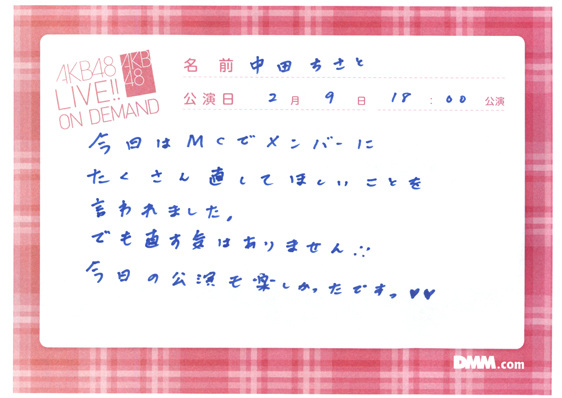 AKB48
LIVE!!
ON DEMAND
AKB
48
名前 中田ちさと
公演日 2月 9日 18:00 公演
今回はMCでメンバーに
たくさん直してほしいことを
言われました。
でも直す気はありません∵
今日の公演も楽しかったですっ♥♥
DMM.com